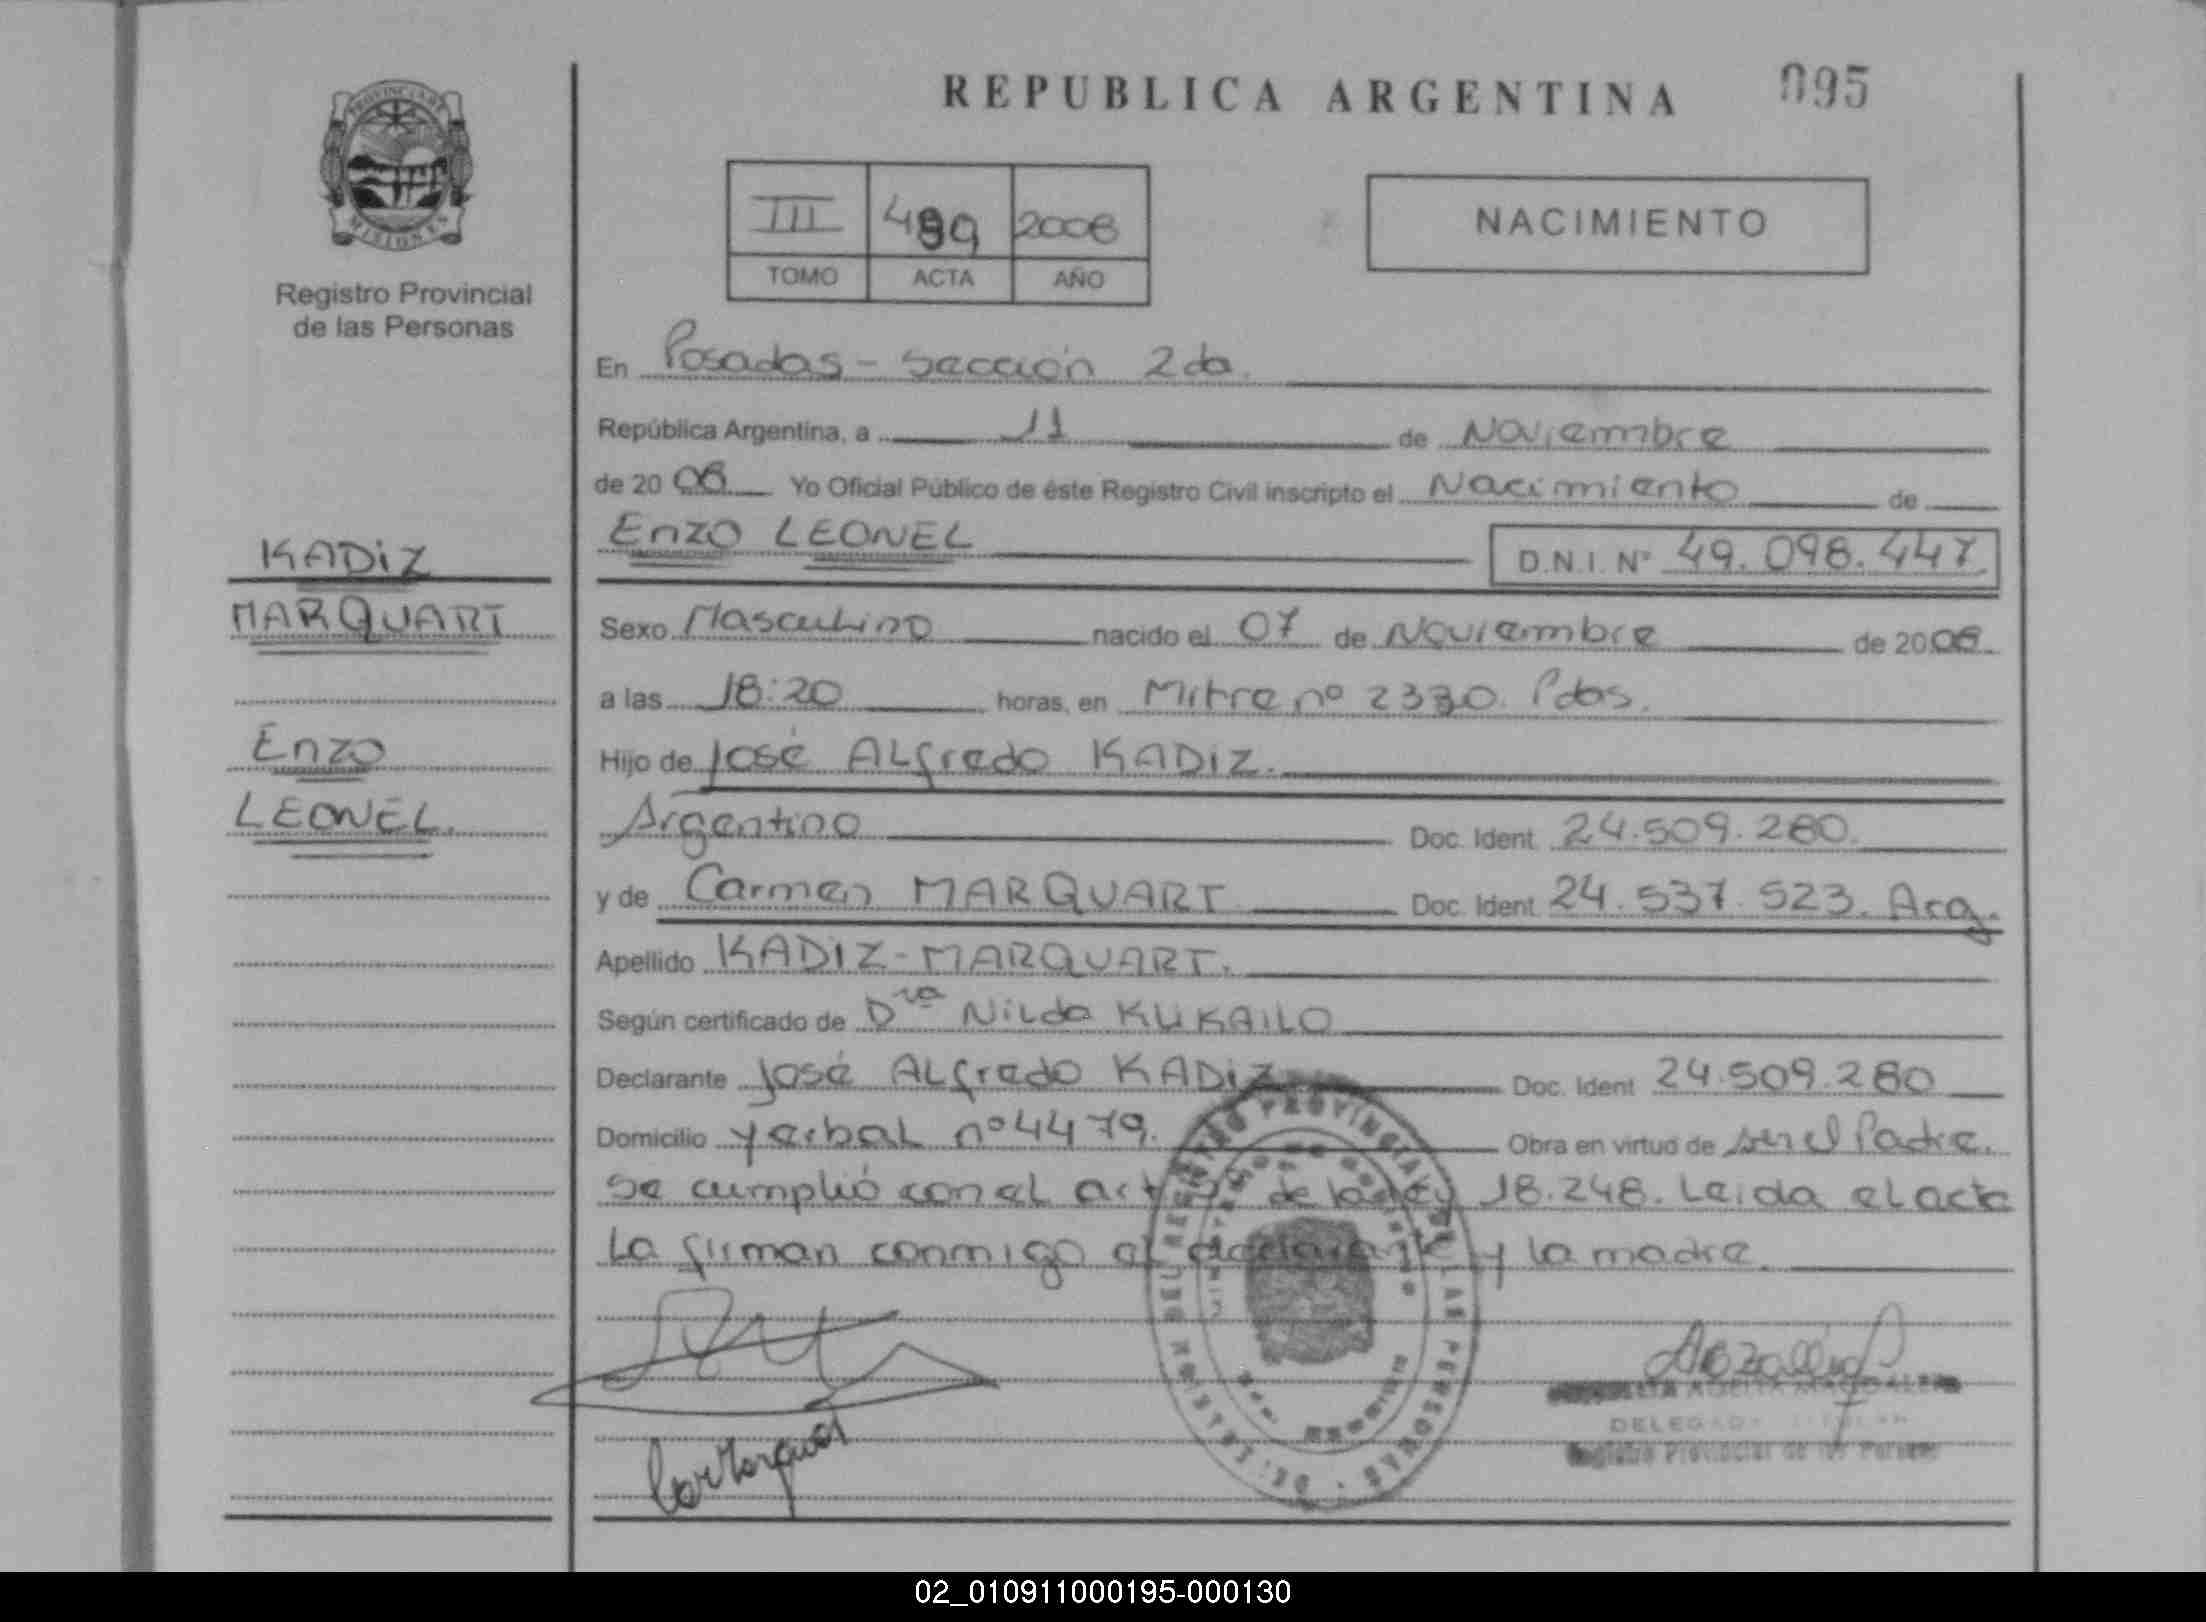 REPUBLICA ARGENTINA 095
PROVINCIA DE
MISIONES
Registro Provincial
de las Personas
III 489 2008
TOMO ACTA AÑO
NACIMIENTO
En Posadas - Sección 2da.
República Argentina, a 11 de Noviembre
de 2008 Yo Oficial Público de éste Registro Civil inscripto el Nacimiento de
Enzo LEONEL D.N.I. Nº 49.098.447
KADIZ
MARQUART
Enzo
LEONEL.
Sexo Masculino nacido el 07 de Noviembre de 2008.
a las 18:20 horas, en Mitre nº 2330. Pdas.
Hijo de José ALfredo KADIZ.
Argentino Doc. Ident. 24.509.280.
y de Carmen MARQUART Doc. Ident. 24.537.523. Arg.
Apellido KADIZ-MARQUART.
Según certificado de Dra Nilda KUKAILO
Declarante José ALfredo KADIZ Doc. Ident. 24.509.280
Domicilio yerbal nº 4479. Obra en virtud de ser el Padre.
Se cumplió con el art de la Ley 18.248. Leida el acta
La firman conmigo el declarante y la madre.
DELEGADA TITULAR
Registro Provincial de las Personas
02_010911000195-000130